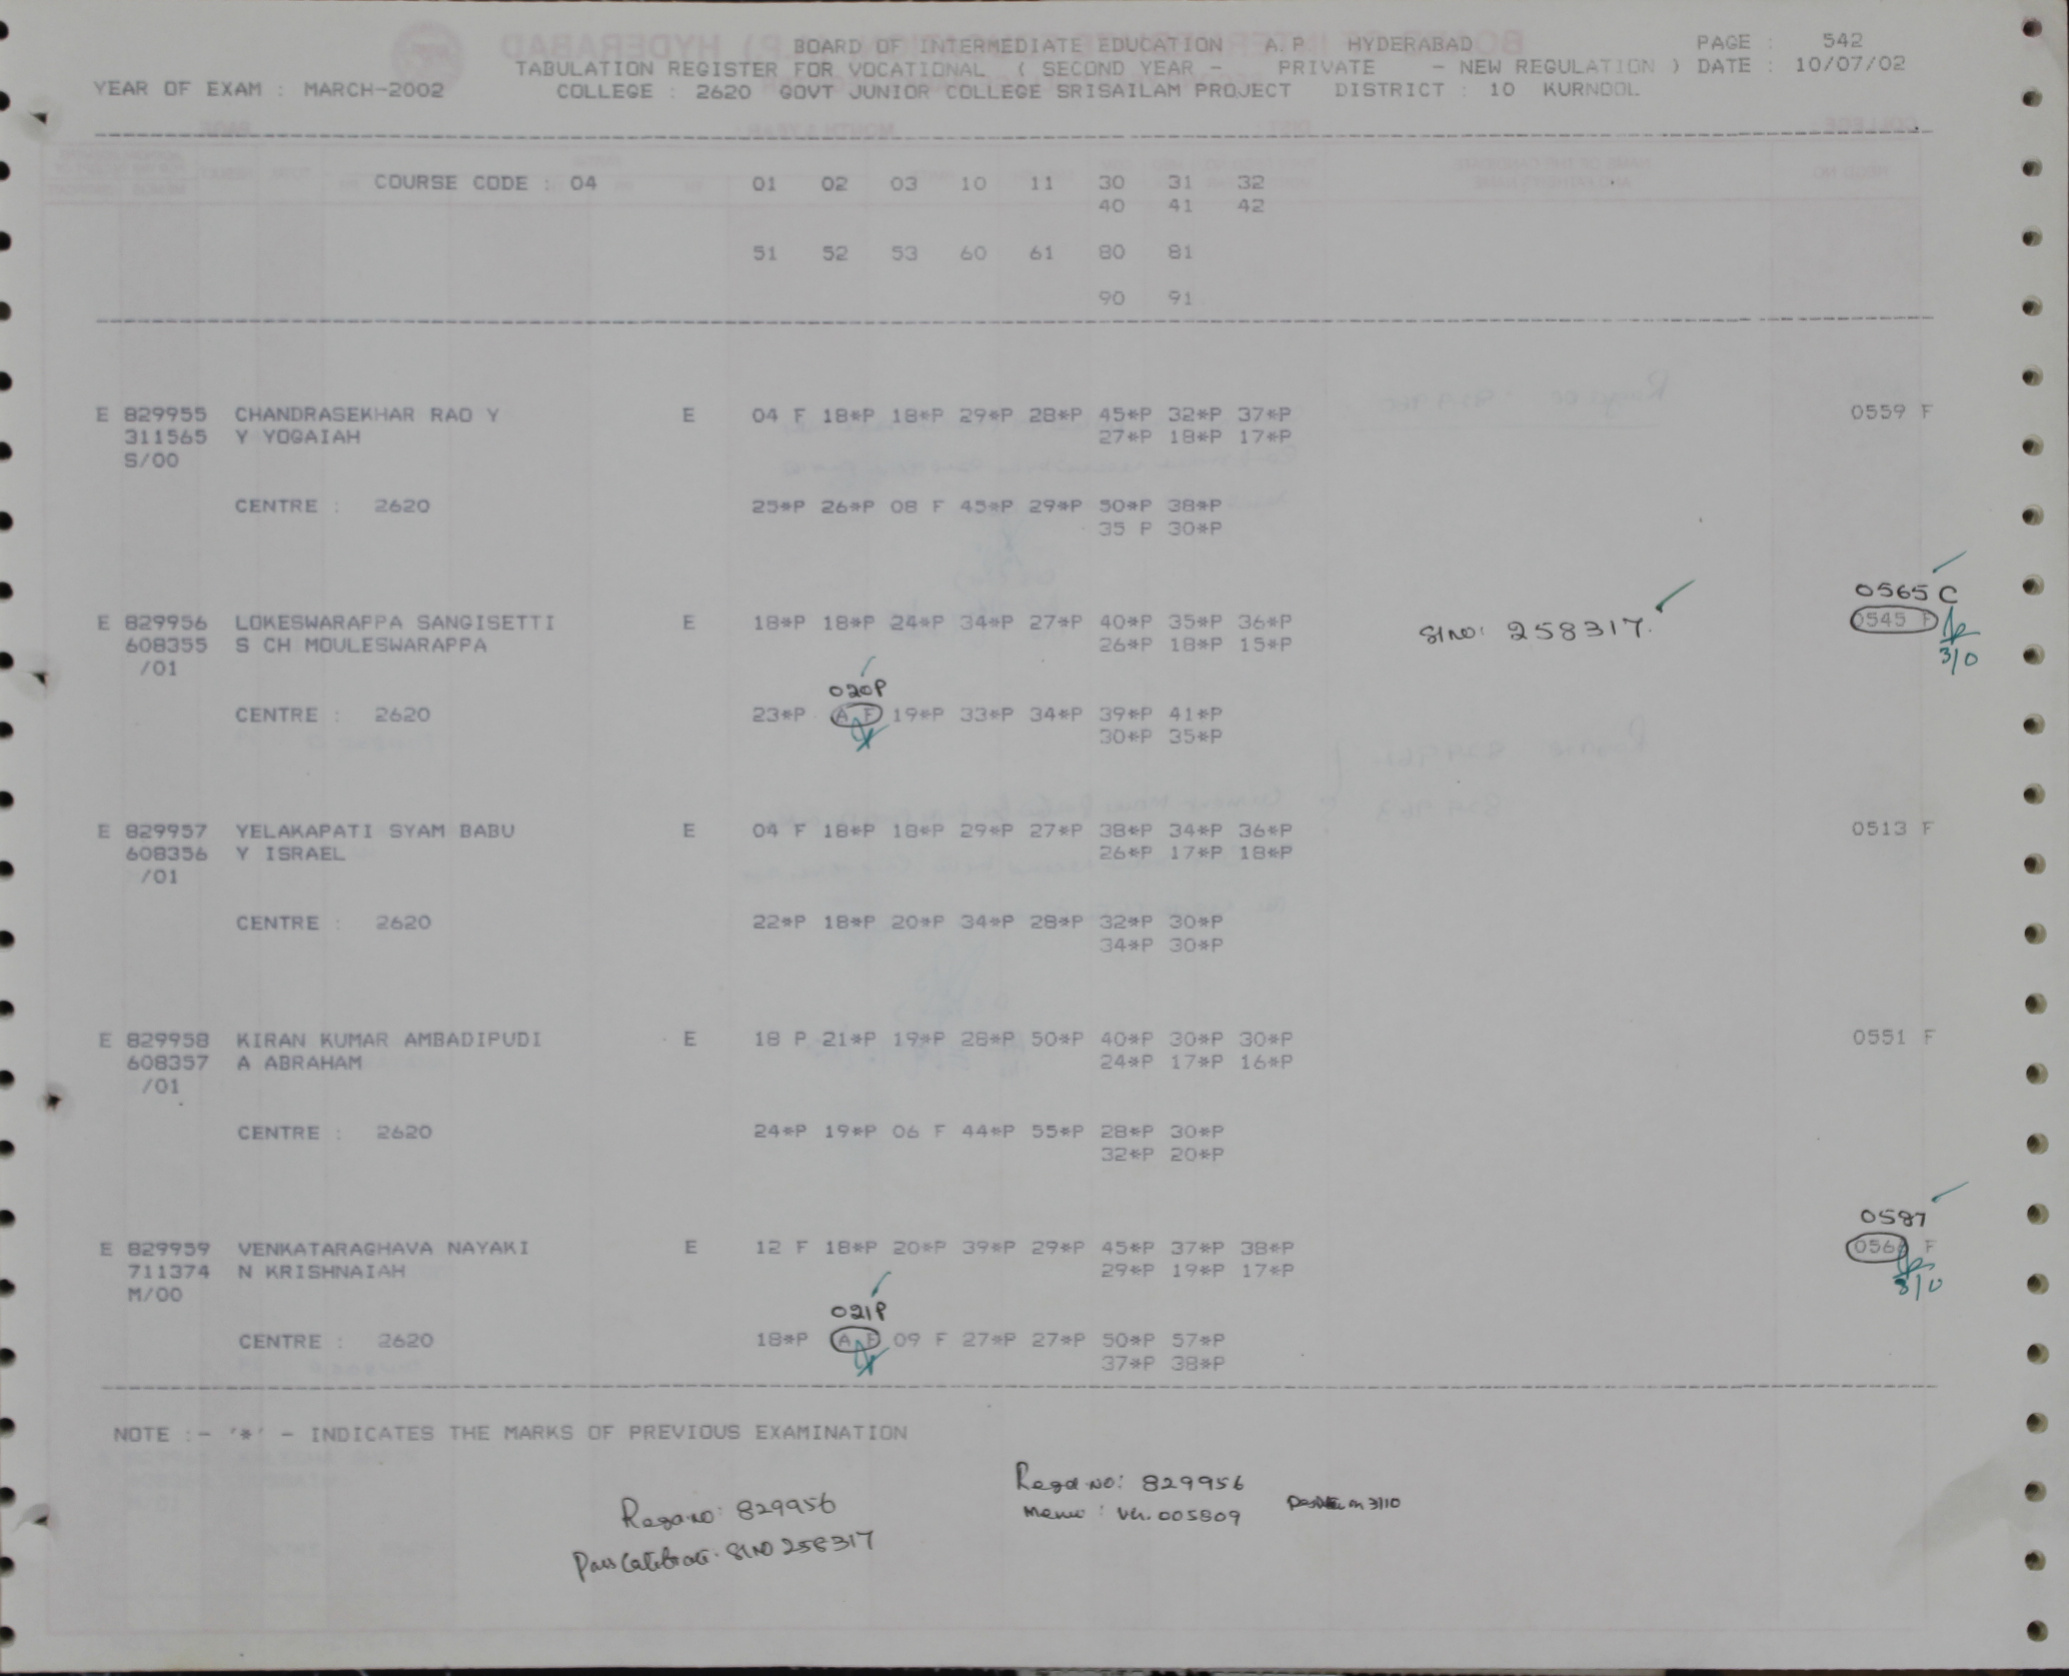 BOARD OF INTERMEDIATE EDUCATION A.P HYDERABAD PAGE : 542
TABULATION REGISTER FOR VOCATIONAL ( SECOND YEAR - PRIVATE - NEW REGULATION ) DATE : 10/07/02
YEAR OF EXAM : MARCH-2002 COLLEGE : 2620 GOVT JUNIOR COLLEGE SRISAILAM PROJECT DISTRICT : 10 KURNOOL
COURSE CODE : 04 01 02 03 10 11 30 31 32
40 41 42
51 52 53 60 61 80 81
90 91
E 829955 CHANDRASEKHAR RAO Y E 04 F 18*P 18*P 29*P 28*P 45*P 32*P 37*P 0559 F
311565 Y YOGAIAH 27*P 18*P 17*P
S/00
CENTRE : 2620 25*P 26*P 08 F 45*P 29*P 50*P 38*P
35 P 30*P
0565 C
E 829956 LOKESWARAPPA SANGISETTI E 18*P 18*P 24*P 34*P 27*P 40*P 35*P 36*P Sl no: 258317. 0545 F
608355 S CH MOULESWARAPPA 26*P 18*P 15*P 3/10
/01
020P
CENTRE : 2620 23*P A F 19*P 33*P 34*P 39*P 41*P
30*P 35*P
E 829957 YELAKAPATI SYAM BABU E 04 F 18*P 18*P 29*P 27*P 38*P 34*P 36*P 0513 F
608356 Y ISRAEL 26*P 17*P 18*P
/01
CENTRE : 2620 22*P 18*P 20*P 34*P 28*P 32*P 30*P
34*P 30*P
E 829958 KIRAN KUMAR AMBADIPUDI E 18 P 21*P 19*P 28*P 50*P 40*P 30*P 30*P 0551 F
608357 A ABRAHAM 24*P 17*P 16*P
/01
CENTRE : 2620 24*P 19*P 06 F 44*P 55*P 28*P 30*P
32*P 20*P
0587
E 829959 VENKATARAGHAVA NAYAKI E 12 F 18*P 20*P 39*P 29*P 45*P 37*P 38*P 0566 F
711374 N KRISHNAIAH 29*P 19*P 17*P 3/10
M/00
021P
CENTRE : 2620 18*P A F 09 F 27*P 27*P 50*P 57*P
37*P 38*P
NOTE :- '*' - INDICATES THE MARKS OF PREVIOUS EXAMINATION
Regd no: 829956
Memo : Vr. 005809 on 3/10
Regd no: 829956
Pass Certificate. Sl NO 258317